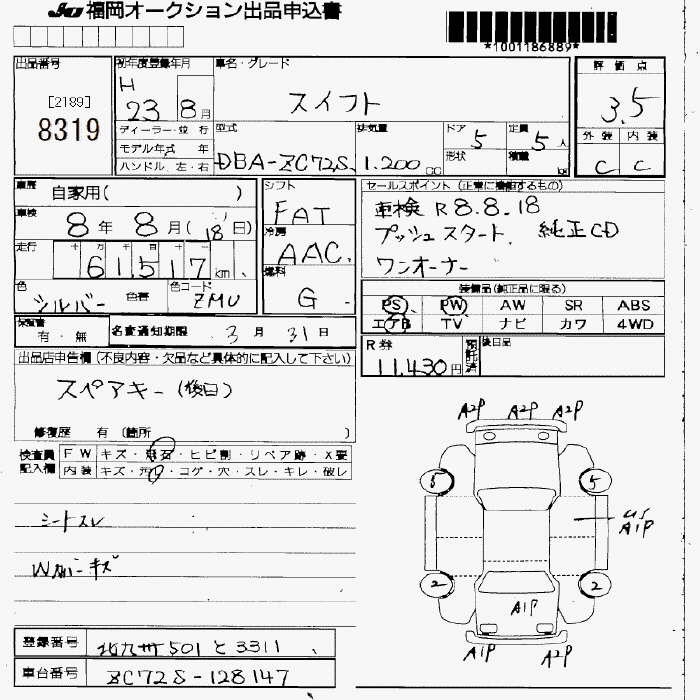 JU 福岡オークション出品申込書
*1001186889*
出品番号
[2189]
8319
初年度登録年月
H
23 8月
車名・グレード
スイフト
評価点
3.5
外装 内装
C C
ディーラー・並行
モデル年式 年
ハンドル 左・右
型式
DBA-ZC72S
排気量
1.200 CC
ドア 5
形状
定員 5人
積載 kg
車歴 自家用( )
車検 8年 8月(18日)
走行 十 万 千 百 十 一
61,517 km
色 シルバー 色替 色コード ZMU
シフト
FAT
冷房
AAC
燃料
G
セールスポイント (正常に機能するもの)
車検 R8.8.18
プッシュスタート、純正CD
ワンオーナー
装備品(純正品に限る)
PS PW AW SR ABS
エアB TV ナビ カワ 4WD
保証書
有・無
名変通知期限 3月 31日
R券
11,430円
預託済
後日品
出品店申告欄(不良内容・欠品など具体的に記入して下さい)
スペアキー(後日)
修復歴 有 (箇所 )
検査員記入欄
FW キズ・飛石・ヒビ割・リペア跡・X要
内装 キズ・汚・コゲ・穴・スレ・キレ・破レ
シートスレ
キズ
A2P A2P A2P
5 5
US
A1P
2 2
A1P
A1P A2P
登録番号 北九州501と3311
車台番号 ZC72S-128147